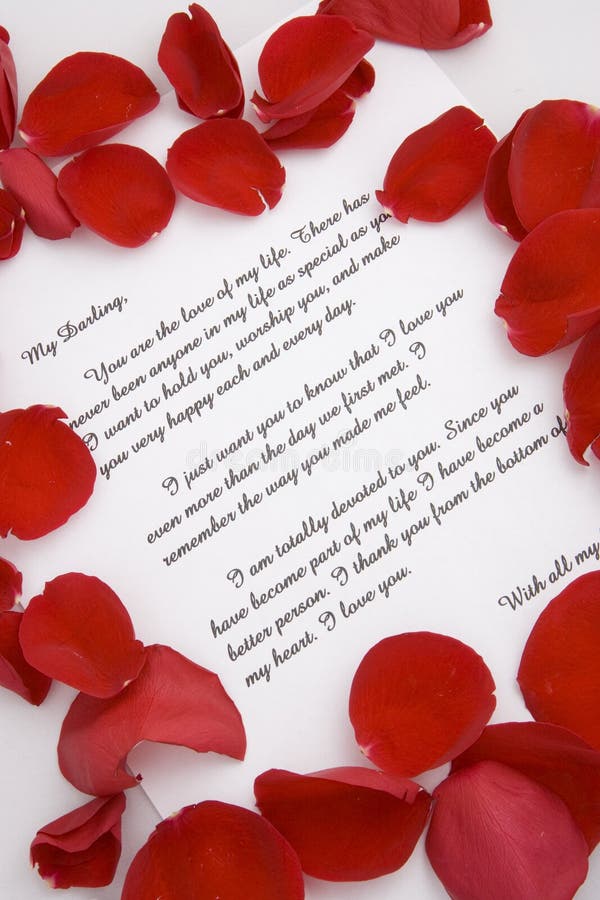 My Darling,
You are the love of my life. There has
never been anyone in my life as special as you.
I want to hold you, worship you, and make
you very happy each and every day.
I just want you to know that I love you
even more than the day we first met. I
remember the way you made me feel.
I am totally devoted to you. Since you
have become part of my life I have become a
better person. I thank you from the bottom of
my heart. I love you.
With all my